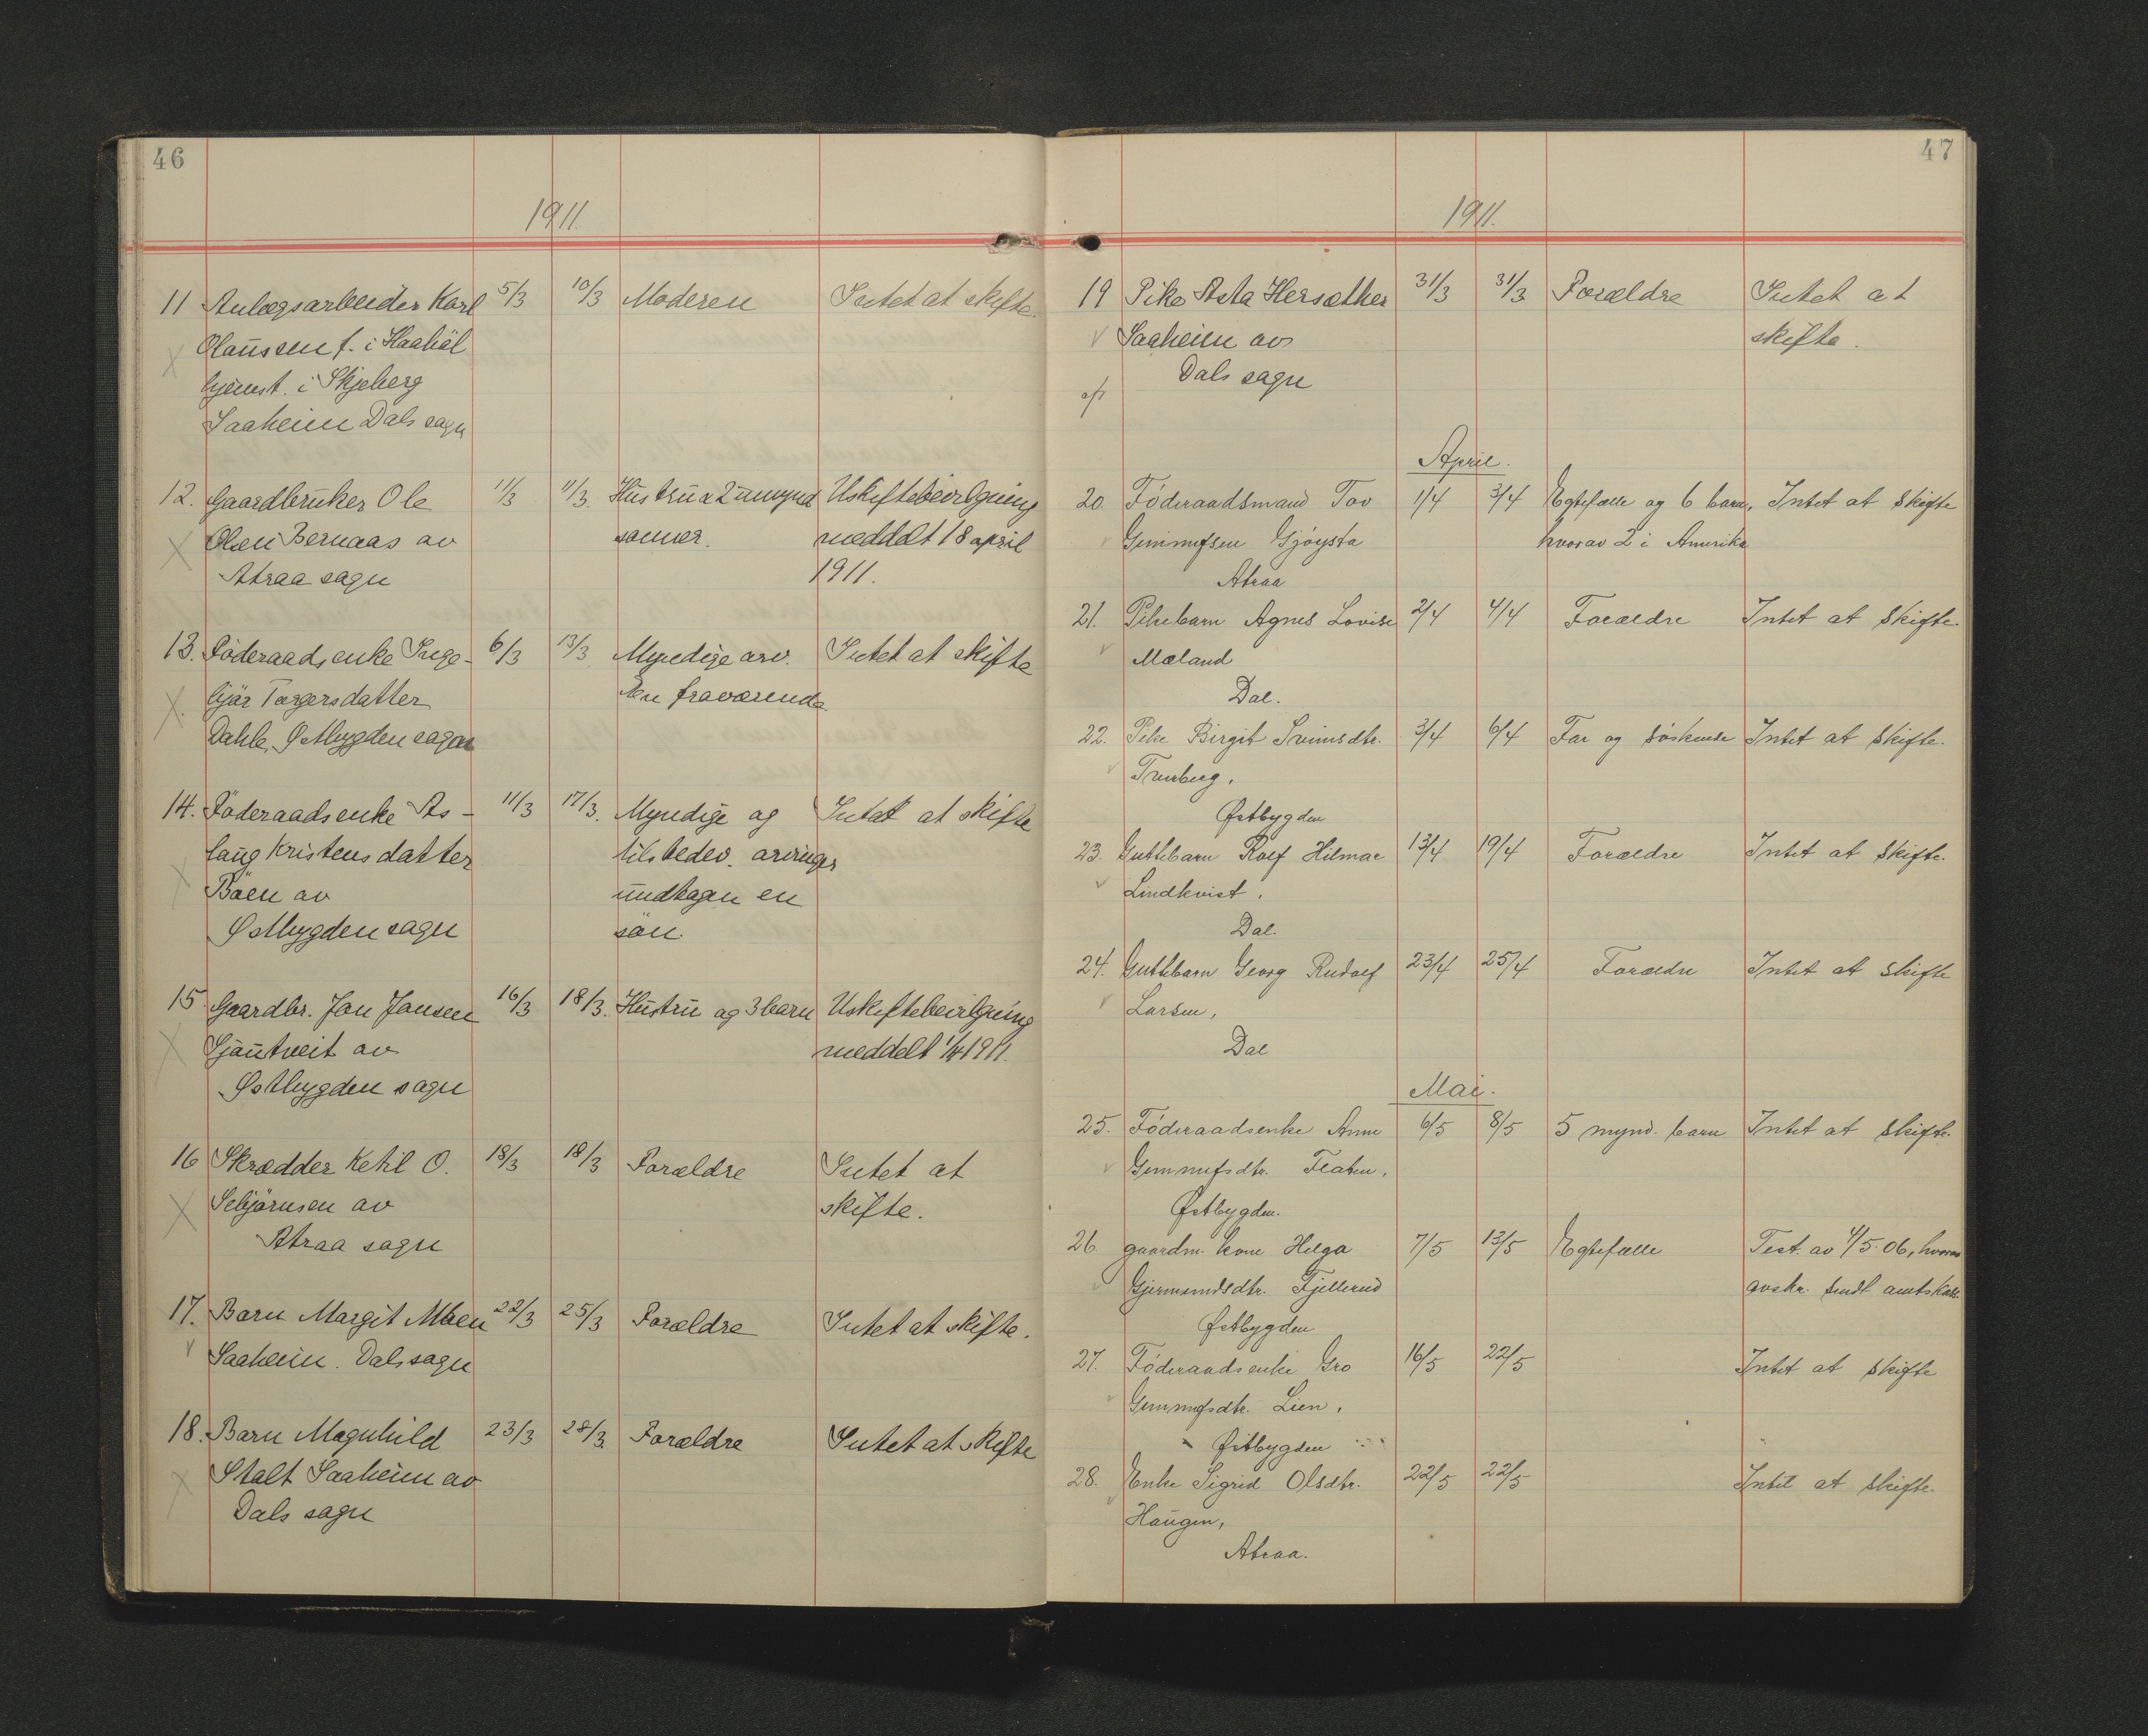 46
1911.
11 Anlægsarbeider Karl 5/3 10/3 Moderen Intet at skifte.
Olaussen f. i Haabøl
hjemst. i Skjeberg
Saaheim Dals sogn
12. Gaardbruker Ole 11/3 11/3. Hustru & 2 umynd Uskiftebevilgning
Olsen Bernaas av sønner. meddelt 18 april
Atraa sogn 1911.
13. Föderaadsenke Inge- 6/3 13/3 Myndige arv. Intet at skifte
bjør Torgersdatter fraværende
Dahle, Østbygden sogn
14. Föderaadsenke As- 11/3 17/3. Myndige og Intet at skifte
laug Kristensdatter tilstedev. arvinger
Bøen av undtagen en
Østbygden sogn søn.
15. Gaardbr. Jon Jonsen 16/3 18/3. Hustru og 3 barn Uskiftebevilgning
Gjøutveit av meddelt 1/4 1911.
Østbygden sogn
16 Skrædder Ketil O. 18/3 18/3 Forældre Intet at
Selgjørnsen av skifte.
Atraa sogn
17. Barn Margit Moen 22/3 25/3 Forældre Intet at skifte.
Saaheim. Dals sogn
18. Barn Magnhild 23/3 28/3. Forældre Intet at skifte
Stalt Saaheim av
Dals sogn
47
1911.
19 Pike Asta Hersæther 31/3 31/3 Forældre Intet at
Saaheim av skifte.
Dals sogn
April.
20. Föderaadsmand Tov 1/4 3/4 Egtefælle og 6 barn, Intet at skifte
Gunnufsen Gjøysta hvorav 2 i Amerika
Atraa
21. Pikebarn Agnes Lovise 2/4 4/4 Forældre Intet at skifte.
Mæland
Dal.
22. Pike Birgit Sveinsdtr. 3/4 6/4 Far og søskende Intet at skifte.
Traaberg,
Østbygden
23. Guttebarn Rolf Hilmar 13/4 19/4 Forældre Intet at skifte.
Lindkvist,
Dal.
24. Guttebarn Georg Rudolf 23/4 25/4 Forældre Intet at skifte
Larsen,
Dal
Mai.
25. Föderaadsenke Anne 6/5 8/5 5 mynd. barn Intet at skifte.
Gunnufsdtr. Flaten,
Østbygden.
26. gaardm. kone Helga 7/5 13/5 Egtefælle Test. av 4/5 06, hvorav
Gjermundsdtr. Fjellerud avskr. sendt amtskass.
Østbygden
27. Föderaadsenke Gro 16/5 22/5 Intet at skifte
Gunnufsdtr. Lien,
Østbygden
28. Enke Sigrid Olsdtr. 22/5 22/5 Intet at skifte.
Haugen,
Atraa.